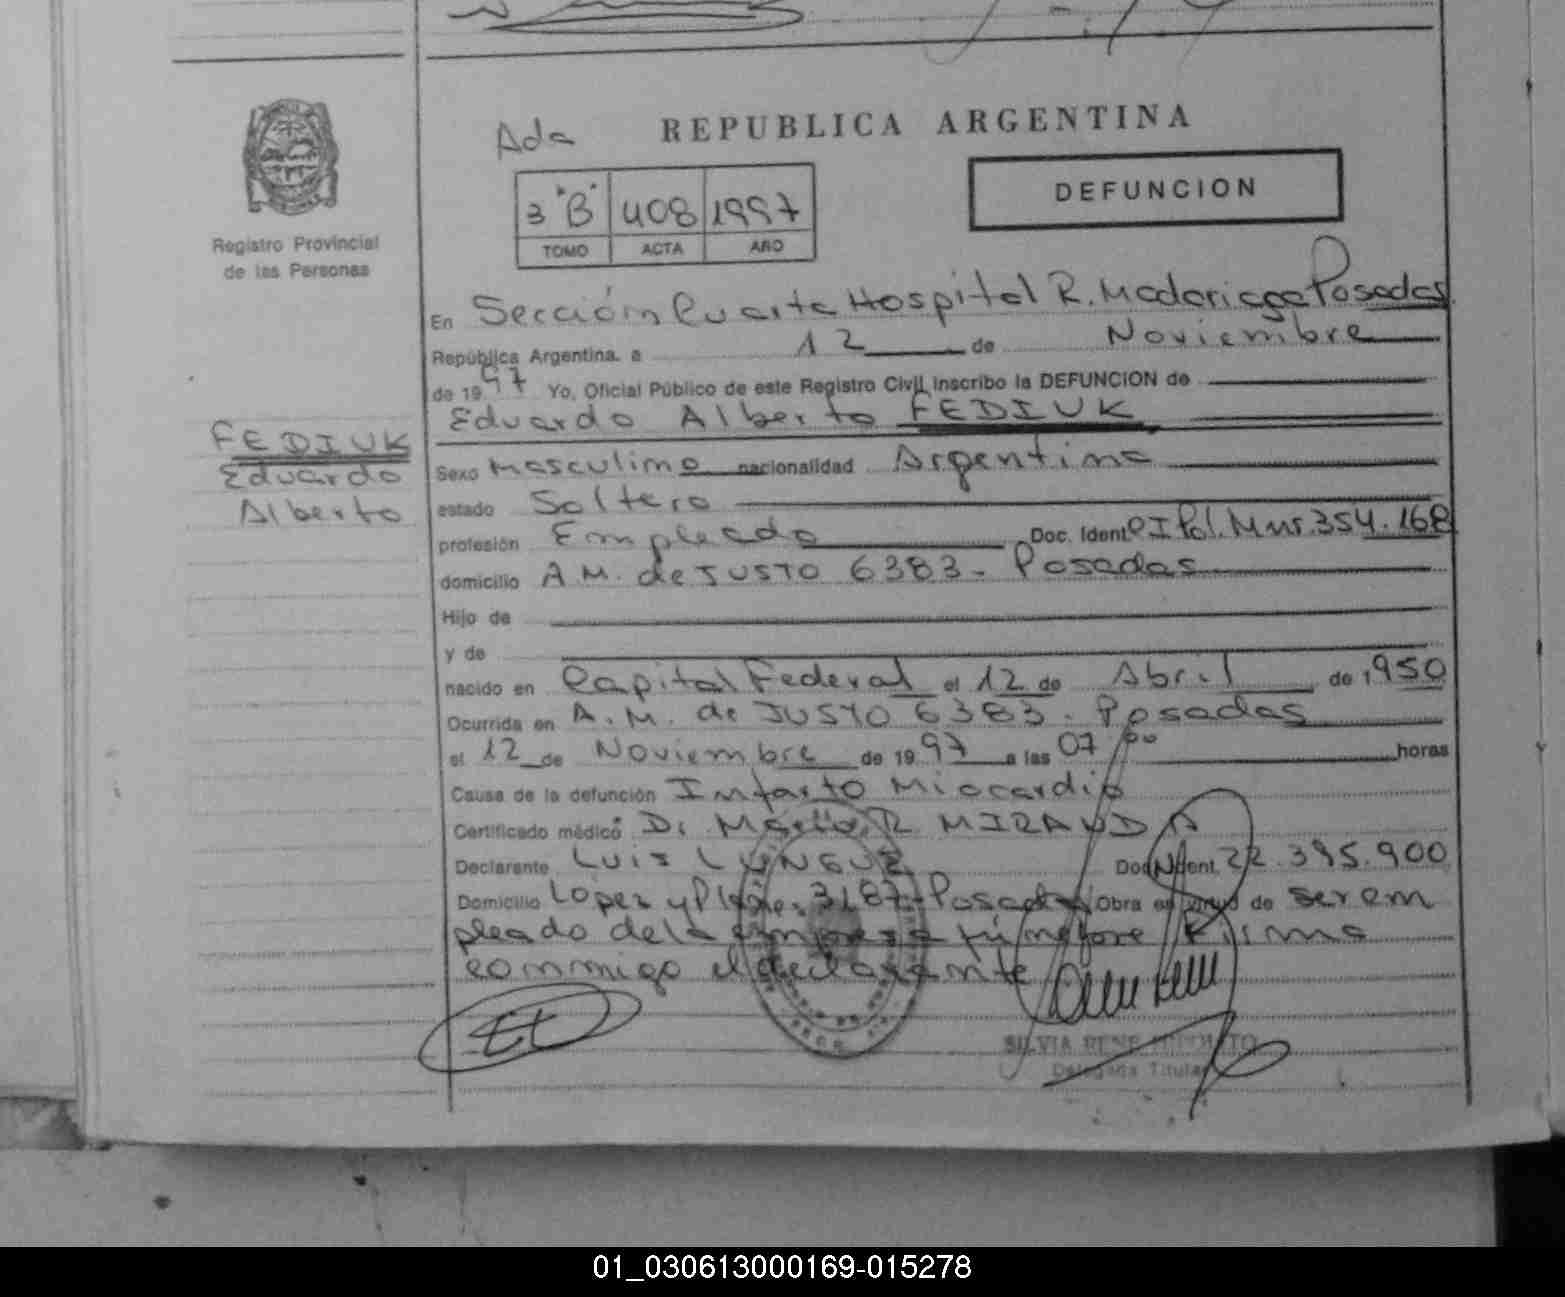 Ada REPUBLICA ARGENTINA
3 "B" 408 1997
TOMO ACTA AÑO
DEFUNCION
Registro Provincial
de las Personas
En Sección Cuarta Hospital R. Madariaga Posadas
República Argentina. a 12 de Noviembre
de 1997 Yo, Oficial Público de este Registro Civil, inscribo la DEFUNCION de
Eduardo Alberto FEDIUK
FEDIUK
Eduardo
Alberto
Sexo Masculino nacionalidad Argentina
estado Soltero
profesión Empleado Doc. Ident. CI Pol. Mns. 354.168
domicilio A.M. de JUSTO 6383 - Posadas
Hijo de
y de
nacido en Capital Federal el 12 de Abril de 1950
Ocurrida en A. M. de JUSTO 6383 - Posadas
el 12 de Noviembre de 1997 a las 07,00 horas
Causa de la defunción Infarto Miocardio
Certificado médico Dr Mario R. MIRANDA
Declarante LUIS Doc. Ident. 22.395.900
Domicilio López y Planes 3187 - Posadas Obra en virtud de ser em
pleado de la empresa fúnebre Firma
conmigo el declarante
SILVIA RENE HIPOLITO
Delegada Titular
01_030613000169-015278